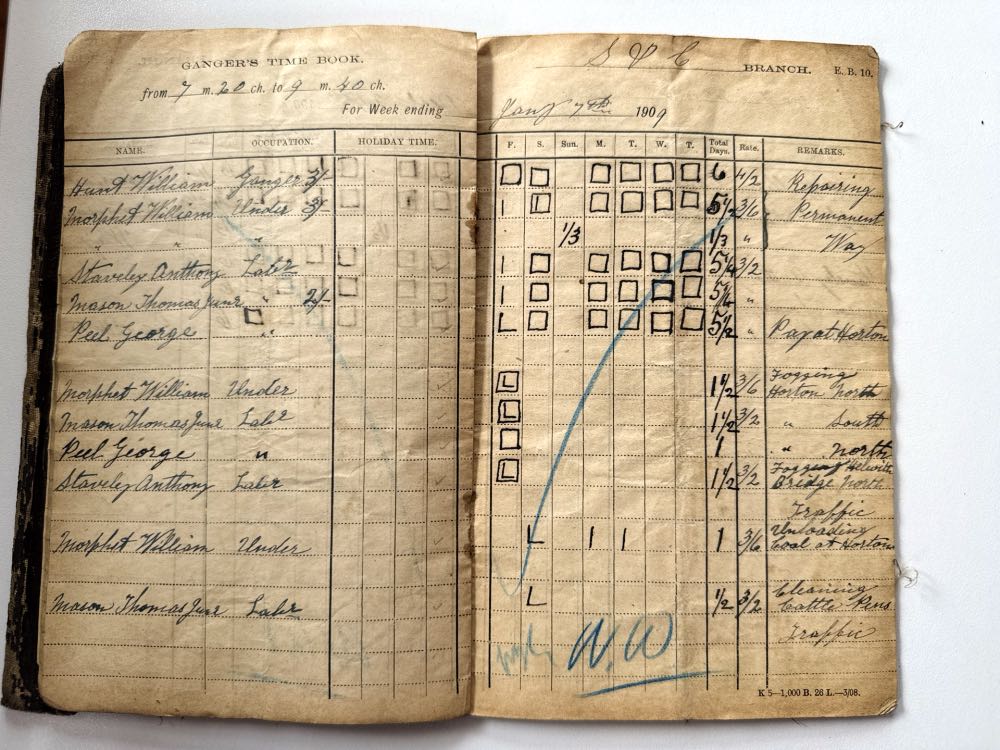 GANGER'S TIME BOOK.
S & C BRANCH. E. B. 10.
from 7 m. 20 ch. to 9 m. 40 ch.
For Week ending Jany 7th 1909
NAME. OCCUPATION. HOLIDAY TIME. F. S. Sun. M. T. W. T. Total Days. Rate. REMARKS.
Hunt William Ganger 3/- 6 4/2 Repairing
Morphet William Under 3/- 5½ 3/6 Permanent
" " " 1/3 1/3 " Way
Staveley Anthony Labr 3/2
Mason Thomas Junr " 2/- "
Peel George " 5½ " Pay at Horton
Morphet William Under 1½ 3/6 Fogging Horton North
Mason Thomas Junr Labr 1½ 3/2 " South
Peel George " 1 " North
Staveley Anthony Laber 1½ 3/2 Fogging Helwith Bridge North
Traffic
Morphet William Under 1 3/6 Unloading Coal at Horton
Mason Thomas Junr Laber ½ 3/2 Cleaning Cattle Pens
Traffic
W. W
K 5—1,000 B. 26 L.—3/08.